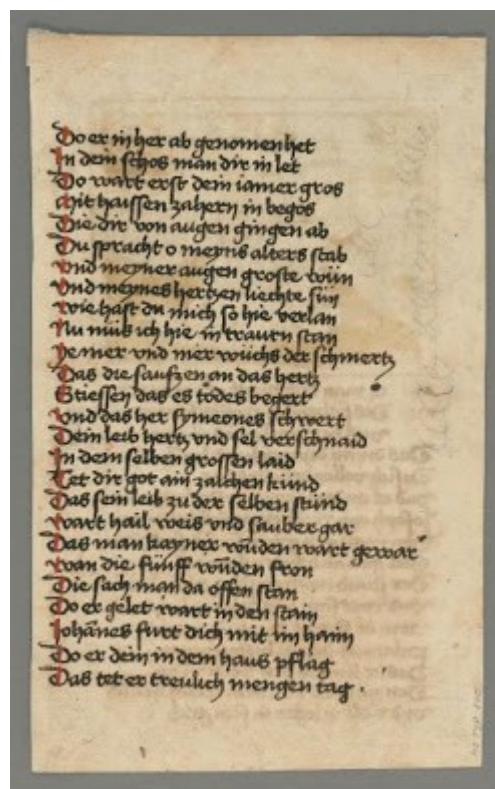 Do er in her ab genomen het
In dem schos man dir in let
Do wart erst dein iamer gros
Mit haissen zahern in begos
Die dir von augen gingen ab
Du spracht o meyns alters stab
Vnd meyner augen groste wün
Vnd meynes hertzen liechte sün
Wie hast du mich so hie verlan
Nu müs ich hie in traurn stan
Ye mer vnd mer wüchs der schmertz
Das die saufzen an das hertz
Stiessen das es todes begert
Vnd das her symeones schwert
Dein leib hertz vnd sel verschnaid
In dem selben grossen laid
Tet dir got ain zaichen künd
Das sein leib zu der selben stünd
Wart hail weis vnd sauber gar
Das man kayner wūden wart gewar
Wan die fünff wūden fron
Die sach man da offen stan
Do er gelet wart in den stain
Johānes furt dich mit im haim
Do er dein in dem haus pflag
Das tet er treulich mengen tag .